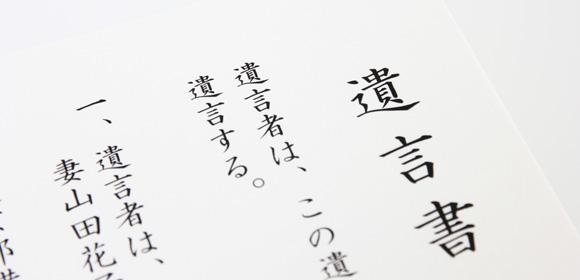 遺言書
遺言者は、この遺
遺言する。
一、遺言者は、
妻山田花
郎